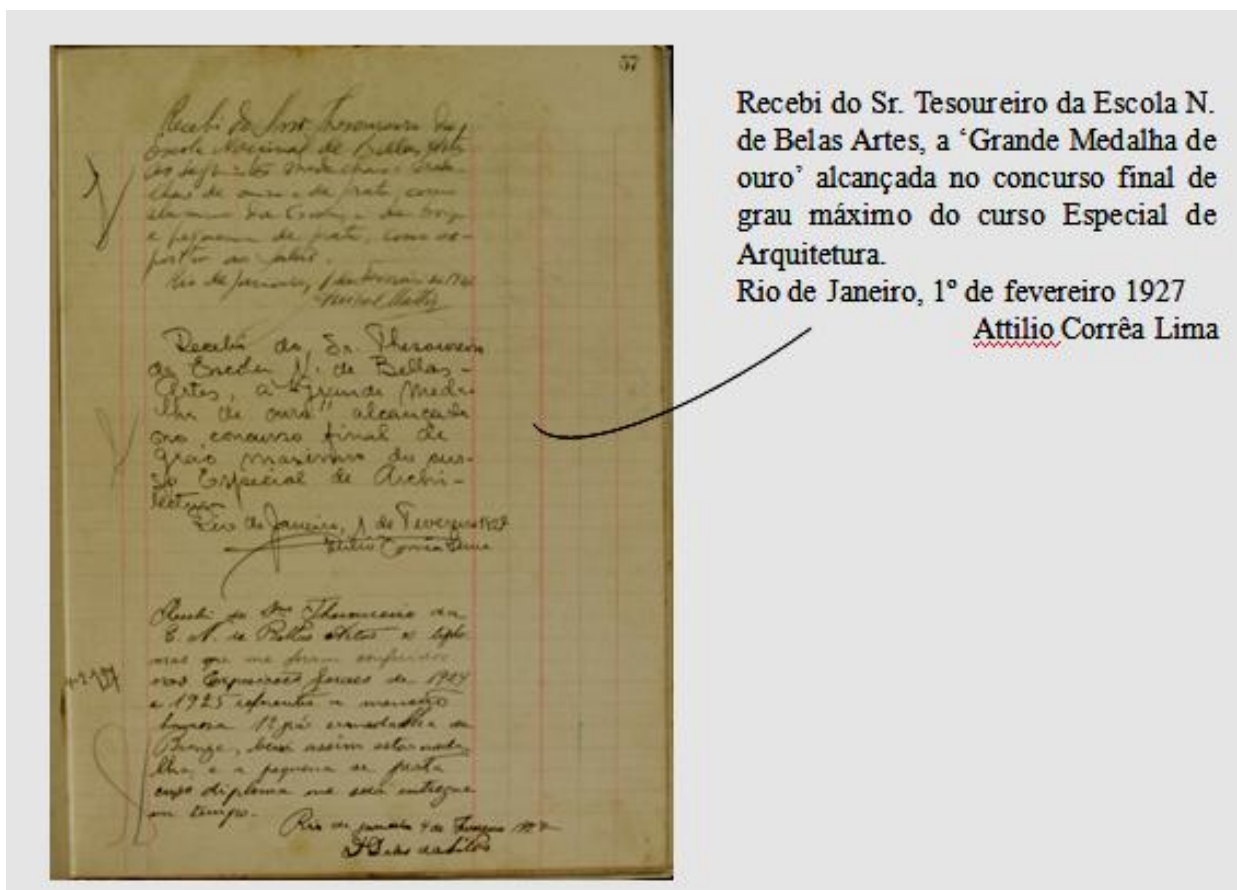 57
Recebi do Snr. Thesoureiro da
Escola Nacional de Bellas Artes
as seguintes medalhas:
de ouro e de prata, como
alumno da Escola, e de bronze
e pequena de prata, como
Rio de Janeiro, 1 de Fevereiro de
Recebi do Sr. Thesoureiro
da Escola N. de Bellas-
Artes, a "Grande Meda-
lha de ouro" alcançada
no concurso final de
grao maximo do cur-
so Especial de Archi-
tectura
Rio de Janeiro, 1 de Fevereiro 1927
Attilio Corrêa Lima
Recebi do Snr. Thesoureiro da
E. N. de Bellas Artes os diplo-
mas que me foram conferidos
nas Exposições Geraes de 1924
e 1925 referentes a menção
honrosa e medalha de
Bronze, bem assim esta meda-
lha, e a pequena de prata
cujo diploma me será entregue
em tempo.
Rio de Janeiro 4 de Fevereiro 1927
Recebi do Sr. Tesoureiro da Escola N.
de Belas Artes, a ‘Grande Medalha de
ouro’ alcançada no concurso final de
grau máximo do curso Especial de
Arquitetura.
Rio de Janeiro, 1º de fevereiro 1927
Attilio Corrêa Lima